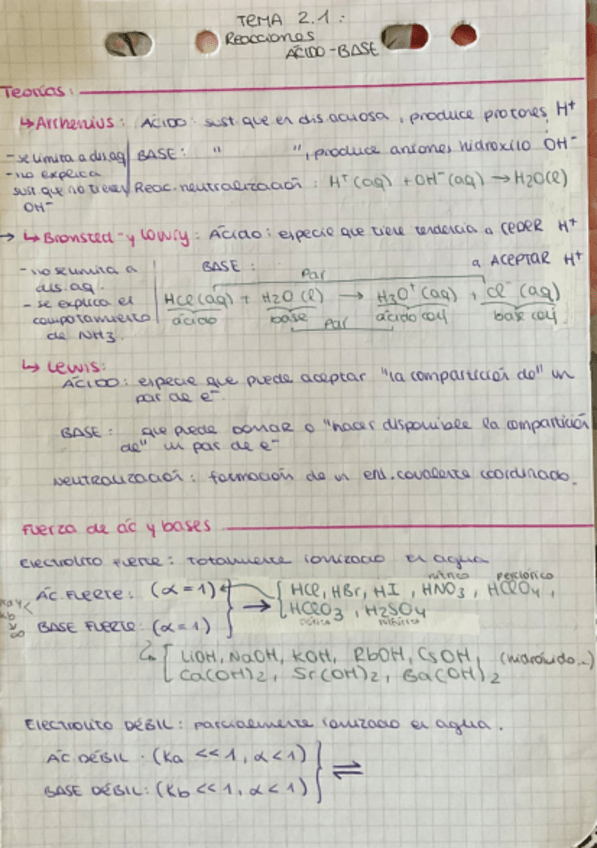 TEMA 2.1:
Reacciones
ÁCIDO-BASE
Teorías:
↳ Arrhenius: ÁCIDO: sust que en dis acuosa, produce protones H⁺
- se limita a dis. aq
BASE: " ", produce aniones hidroxilo OH⁻
- no explica
sust que no tienen OH⁻
Reac. neutralización: H⁺(aq) + OH⁻(aq) → H₂O(l)
→ ↳ Bronsted-y Lowry: ÁCIDO: especie que tiene tendencia a CEDER H⁺
BASE: a ACEPTAR H⁺
- no se limita a
dis. aq.
- se explica el
comportamiento
de NH₃.
Par
HCl(aq) + H₂O(l) → H₃O⁺(aq) + Cl⁻(aq)
ácido base ácido conj base conj.
Par
↳ Lewis:
ÁCIDO: especie que puede aceptar "la compartición de" un
par de e⁻
BASE: que puede donar o "hacer disponible la compartición
de" un par de e⁻
Neutralización: formación de un enl. covalente coordinado.
Fuerza de ác y bases
Electrolito fuerte: totalmente ionizado en agua
nítrico perclórico
ÁC. FUERTE: (α=1) → HCl, HBr, HI, HNO₃, HClO₄,
HClO₃, H₂SO₄
clórico sulfúrico
Ka y
Kb
∞
BASE FUERTE: (α=1)
LiOH, NaOH, KOH, RbOH, CsOH, (hidróxido...)
Ca(OH)₂, Sr(OH)₂, Ba(OH)₂
Electrolito DÉBIL: parcialmente ionizado en agua.
ÁC DÉBIL: (Ka <<1, α<1)
BASE DÉBIL: (Kb <<1, α<1) ⇌